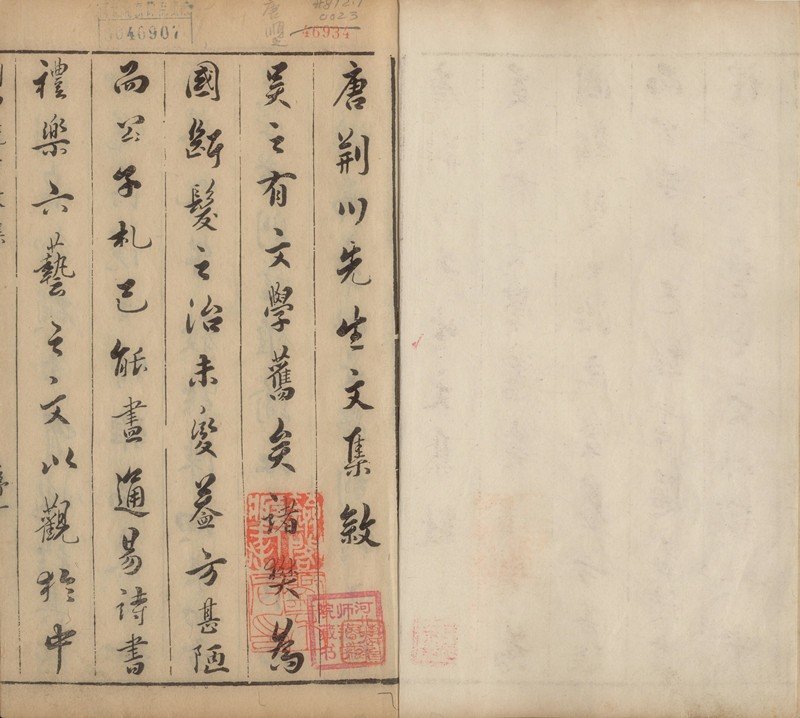 唐荆川先生文集敘
吴之有文學舊矣諸樊為
國斷髮之治未變蓋方甚陋
而公子札已能盡通易詩書
禮樂六藝之文以觀於中
040907
0023
46934
唐